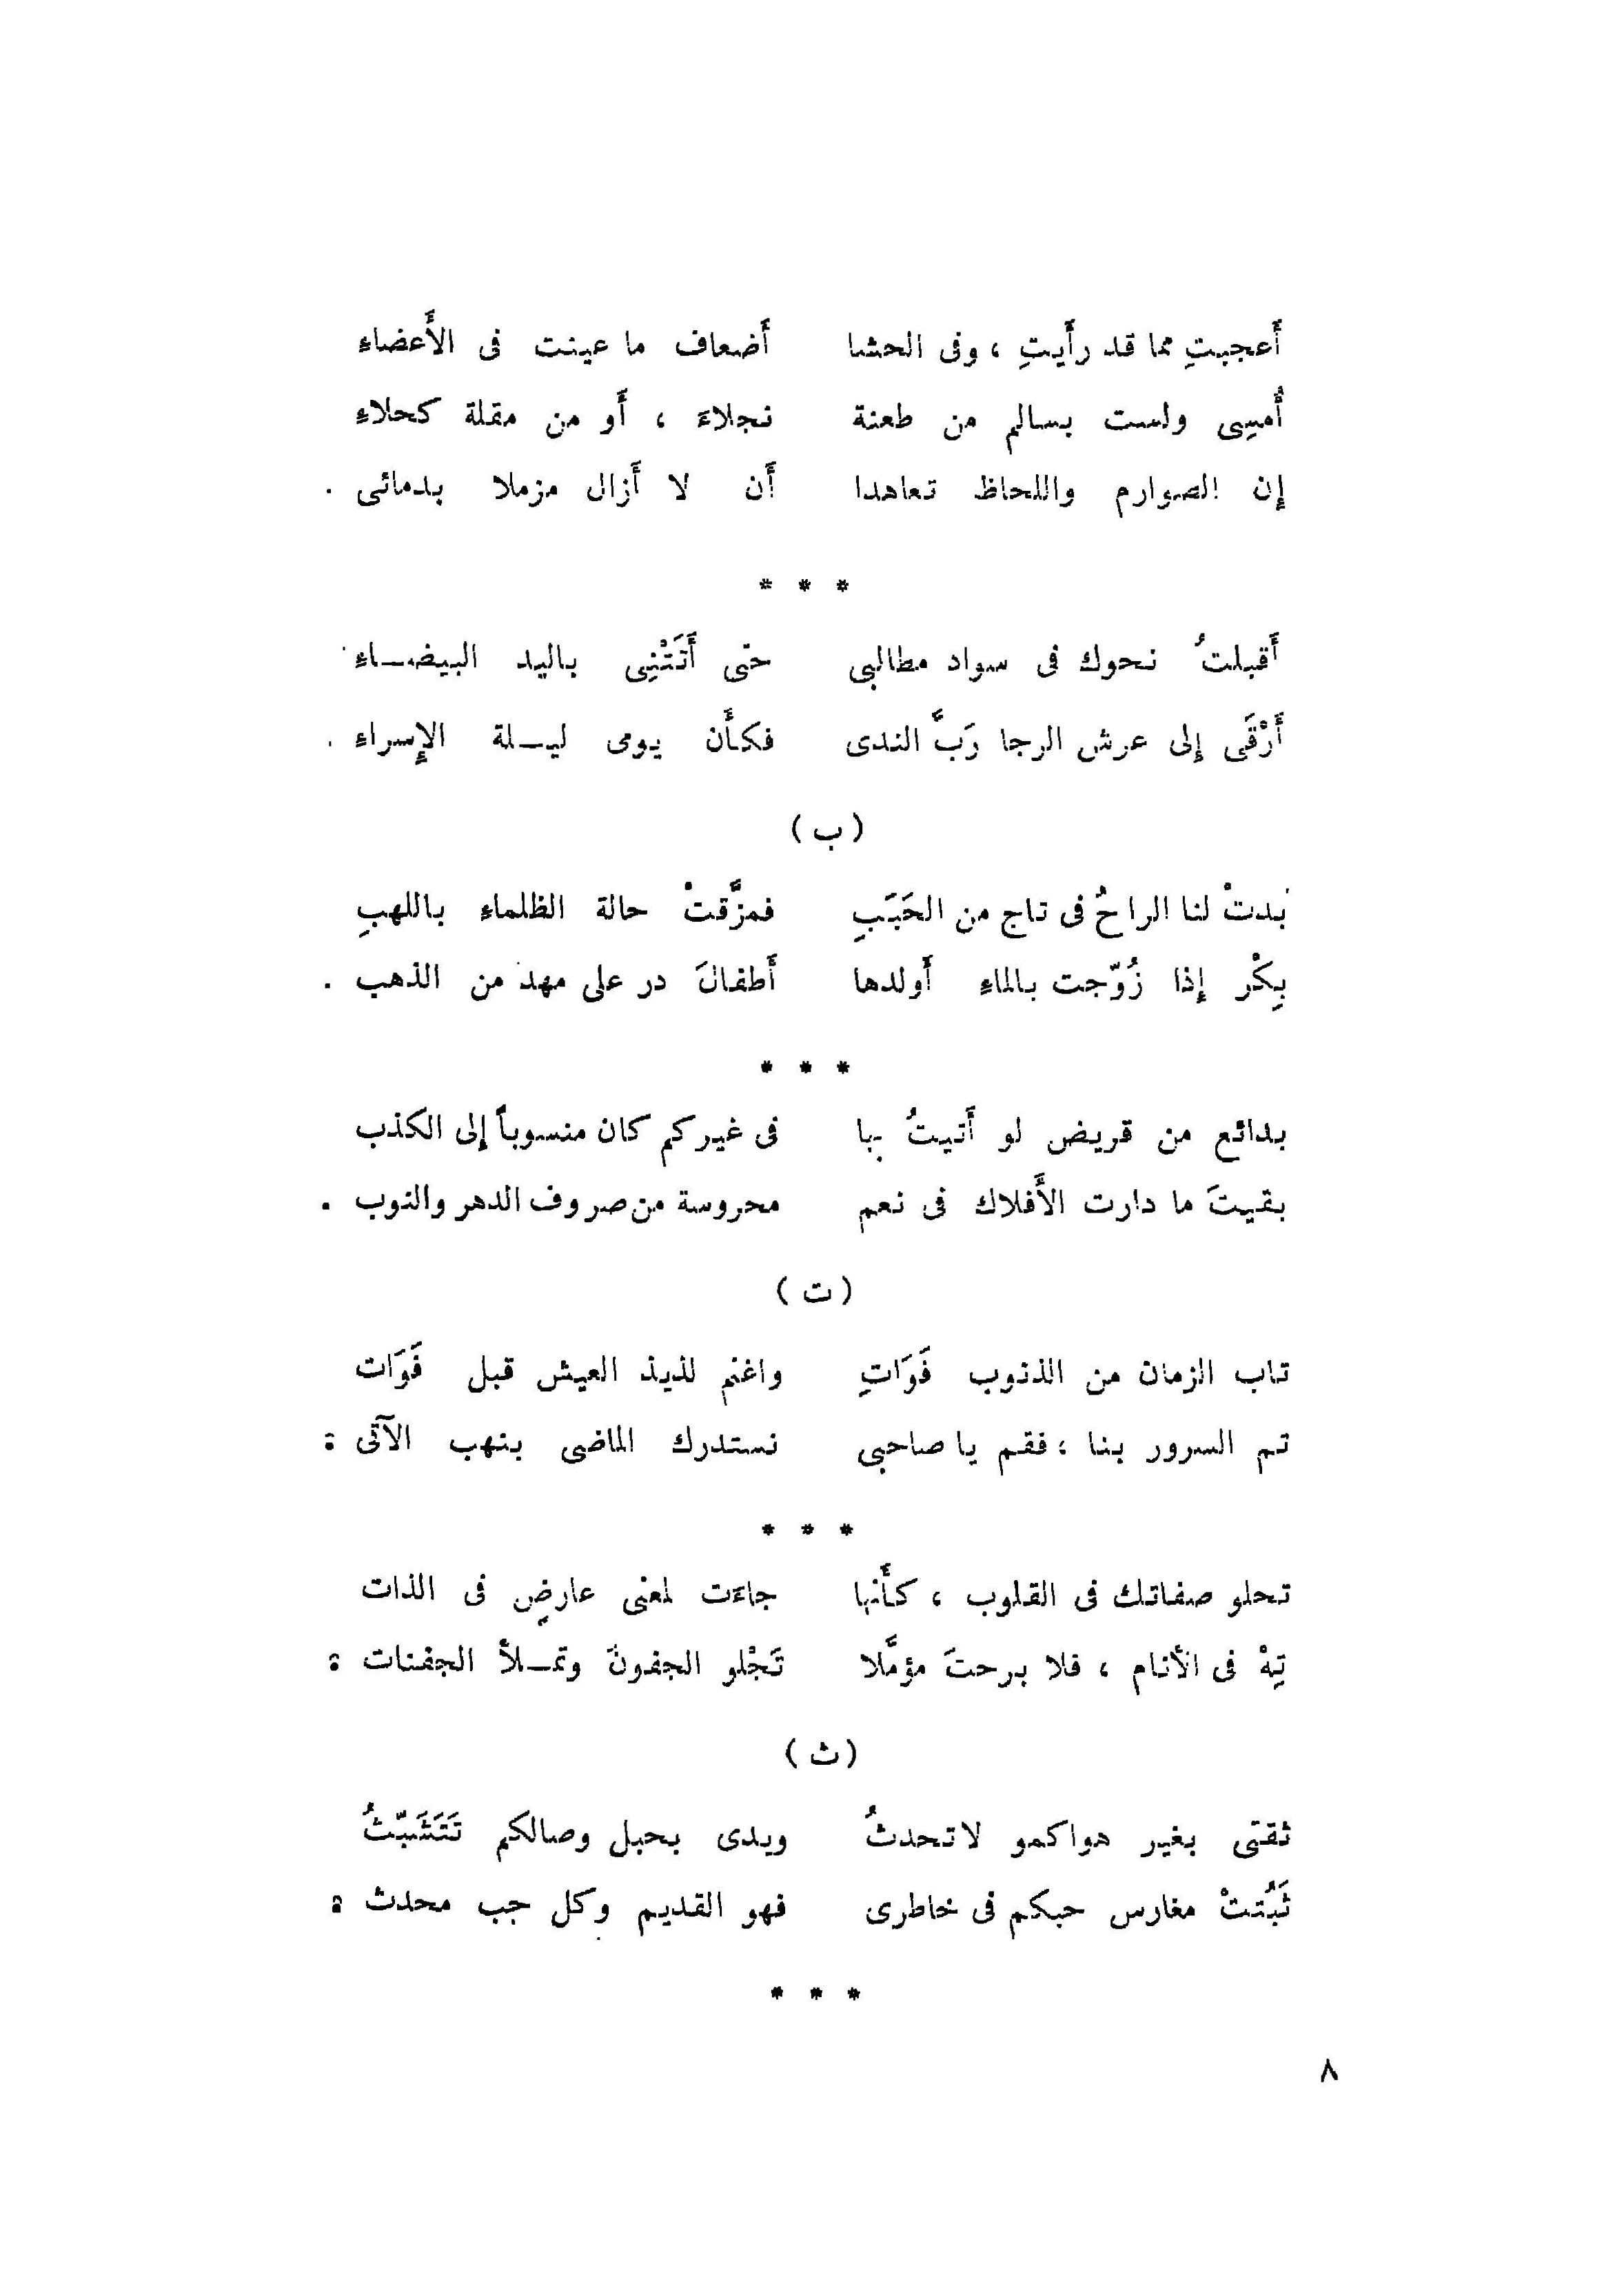 أَعجبتِ مما قد رأَيتِ ، وفى الحشا أَضعاف ما عينت فى الأَعضاءِ
أُمسِى ولست بسالم من طعنة نجلاءَ ، أَو من مقلة كحلاءِ
إِن الصوارم واللحاظ تعاهدا أَن لا أَزال مزملا بدمائى .
* * *
أَقبلتُ نحوك فى سواد مطالبى حتى أَتَتْنِى باليد البيضــاءِ
أَرْقَى إِلى عرش الرجا رَبَّ الندى فكأَن يومى ليــلة الإِسراءِ .
( ب )
بدتْ لنا الراحُ فى تاج من الحَبَبِ فمزَّقتْ حالة الظلماءِ باللهبِ
بِكْر إِذا زُوّجت بالماءِ أَولدها أَطفالَ در على مهد من الذهب .
* * *
بدائع من قريض لو أَتيتُ بها فى غيركم كان منسوباً إِلى الكذب
بقيتَ ما دارت الأَفلاك فى نعم محروسة من صروف الدهر والنوب .
( ت )
تاب الزمان من الذنوب فَوَاتِ واغنم لذيذ العيش قبل فَوَات
تم السرور بنا ، فقم يا صاحبى نستدرك الماضى بنهب الآتى ؛
* * *
تحلو صفاتك فى القلوب ، كأَنها جاءَت لمعنى عارضٍ فى الذات
تِهْ فى الأنام ، فلا برحتَ مؤمَّلا تَجْلو الجفونَ وتمــلأ الجفنات ؛
( ث )
ثقتى بغير هواكمو لا تحدثُ ويدى بحبل وصالكم تَتَشَبّثُ
ثَبُتتْ مغارس حبكم فى خاطرى فهو القديم وكل جب محدث ؛
* * *
٨